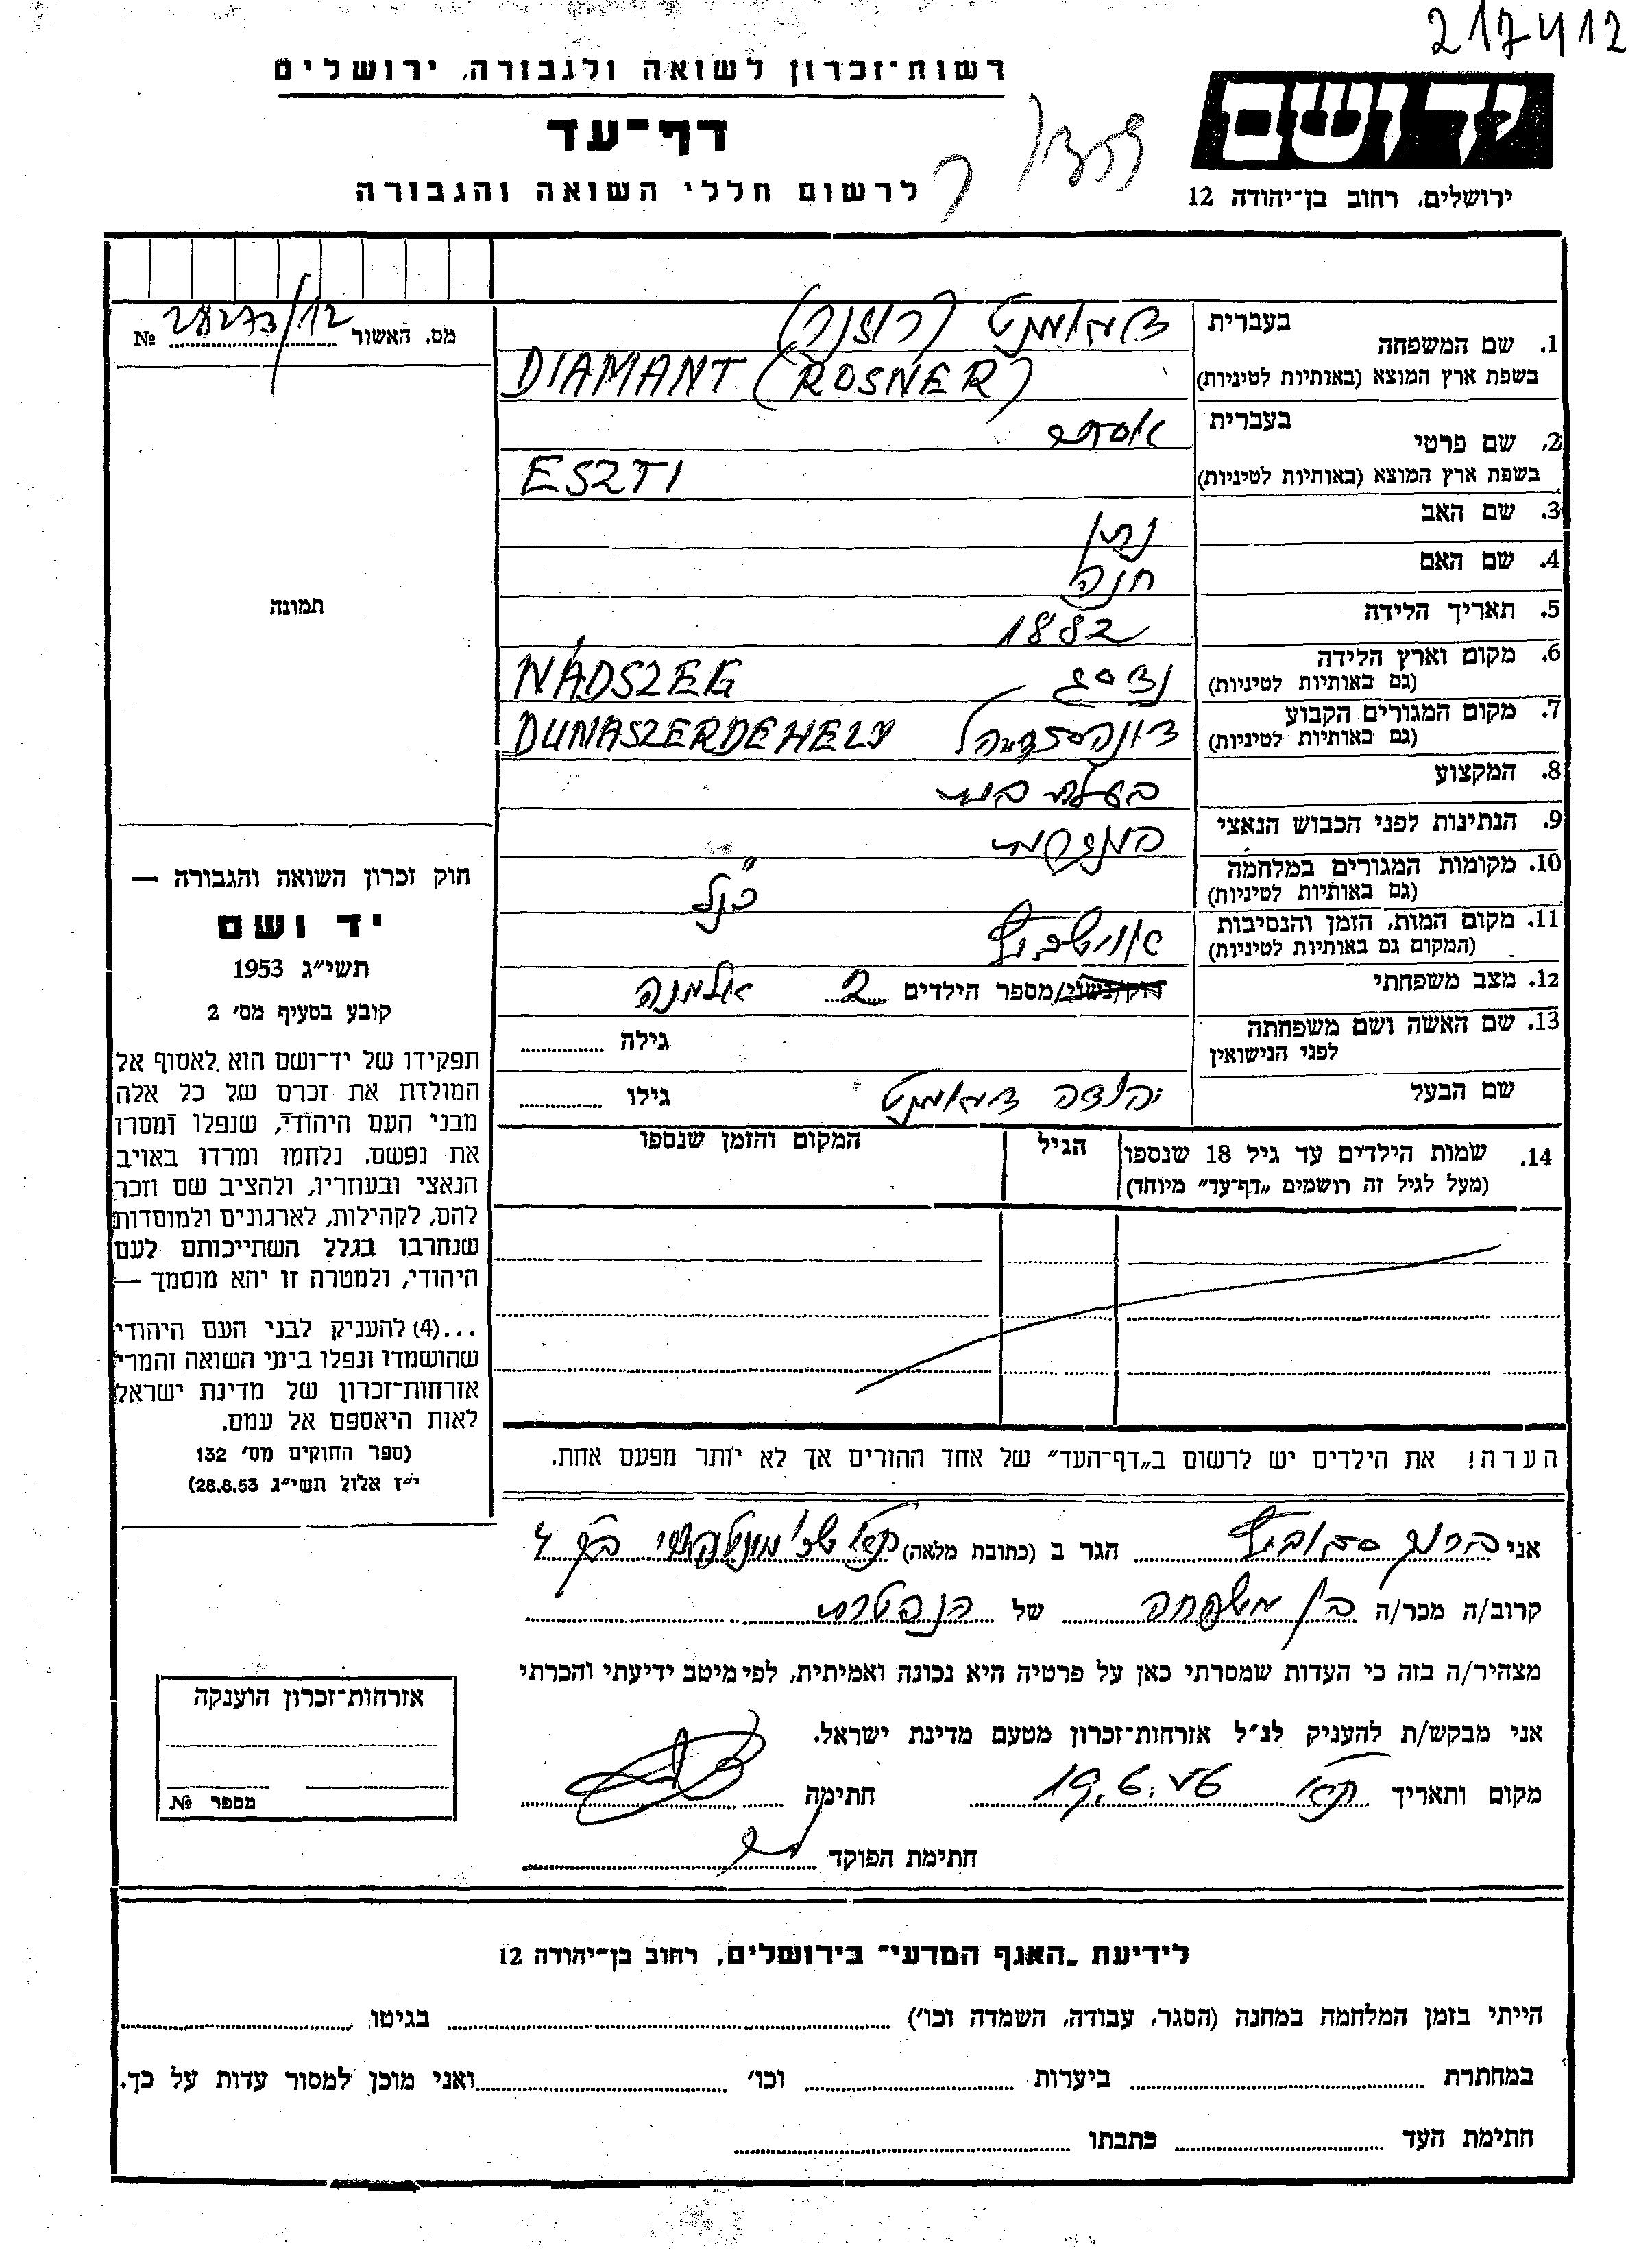 217412
רשות־זכרון לשואה ולגבורה, ירושלים
יד ושם
דף־עד
לרשום חללי השואה והגבורה
ירושלים, רחוב בן־יהודה 12
1. שם המשפחה בעברית דיאמנט (רוזנר)
בשפת ארץ המוצא (באותיות לטיניות) DIAMANT (ROSNER)
מס. האשור 28273/12 №
2. שם פרטי בעברית אסתי
בשפת ארץ המוצא (באותיות לטיניות) ESZTI
3. שם האב נתן
4. שם האם חנה
5. תאריך הלידה 1882
תמונה
6. מקום וארץ הלידה נדסג NÁDSZEG
(גם באותיות לטיניות)
7. מקום המגורים הקבוע DUNASZERDEHELY
(גם באותיות לטיניות)
8. המקצוע בעלת בית
9. הנתינות לפני הכבוש הנאצי
10. מקומות המגורים במלחמה כנ"ל
(גם באותיות לטיניות)
11. מקום המות, הזמן והנסיבות אושביץ
(המקום גם באותיות לטיניות)
12. מצב משפחתי רוק/נשוי/מספר הילדים 2 אלמנה
13. שם האשה ושם משפחתה לפני הנישואין גילה
שם הבעל יהודה דיאמנט גילו
14. שמות הילדים עד גיל 18 שנספו הגיל המקום והזמן שנספו
(מעל לגיל זה רושמים „דף־עד” מיוחד)
חוק זכרון השואה והגבורה —
יד ושם
תשי״ג 1953
קובע בסעיף מס׳ 2
תפקידו של יד־ושם הוא לאסוף אל
המולדת את זכרם של כל אלה
מבני העם היהודי, שנפלו ומסרו
את נפשם, נלחמו ומרדו באויב
הנאצי ובעוזריו, ולהציב שם וזכר
להם, לקהילות, לארגונים ולמוסדות
שנחרבו בגלל השתייכותם לעם
היהודי, ולמטרה זו יהא מוסמך —
...(4) להעניק לבני העם היהודי
שהושמדו ונפלו בימי השואה והמרי
אזרחות־זכרון של מדינת ישראל
לאות היאספם אל עמם.
(ספר החוקים מס׳ 132
י״ז אלול תשי״ג 28.8.53)
הערה! את הילדים יש לרשום ב„דף־העד” של אחד ההורים אך לא יותר מפעם אחת.
אני הגר ב (כתובת מלאה)
קרוב/ה מכר/ה בן משפחה של הנפטרת
מצהיר/ה בזה כי העדות שמסרתי כאן על פרטיה היא נכונה ואמיתית, לפי מיטב ידיעתי והכרתי
אני מבקש/ת להעניק לנ״ל אזרחות־זכרון מטעם מדינת ישראל.
מקום ותאריך 19.6.56 חתימה
חתימת הפוקד
אזרחות־זכרון הוענקה
מספר №
לידיעת „האגף המדעי” בירושלים, רחוב בן־יהודה 12
הייתי בזמן המלחמה במחנה (הסגר, עבודה, השמדה וכו׳) בגיטו
במחתרת ביערות וכו׳ ואני מוכן למסור עדות על כך.
חתימת העד כתבתו